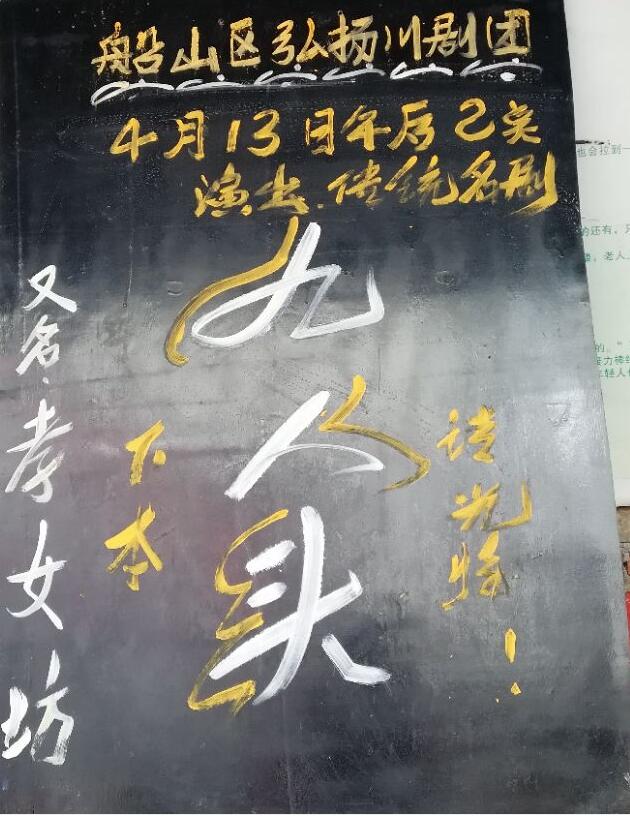 船山区弘扬川剧团
4月13日午后2点
演出.传统名剧
九人头
下本
又名.孝女坊
请光临!
也会拉到一
的还有,只
老人
的。"
接力棒
年轻人